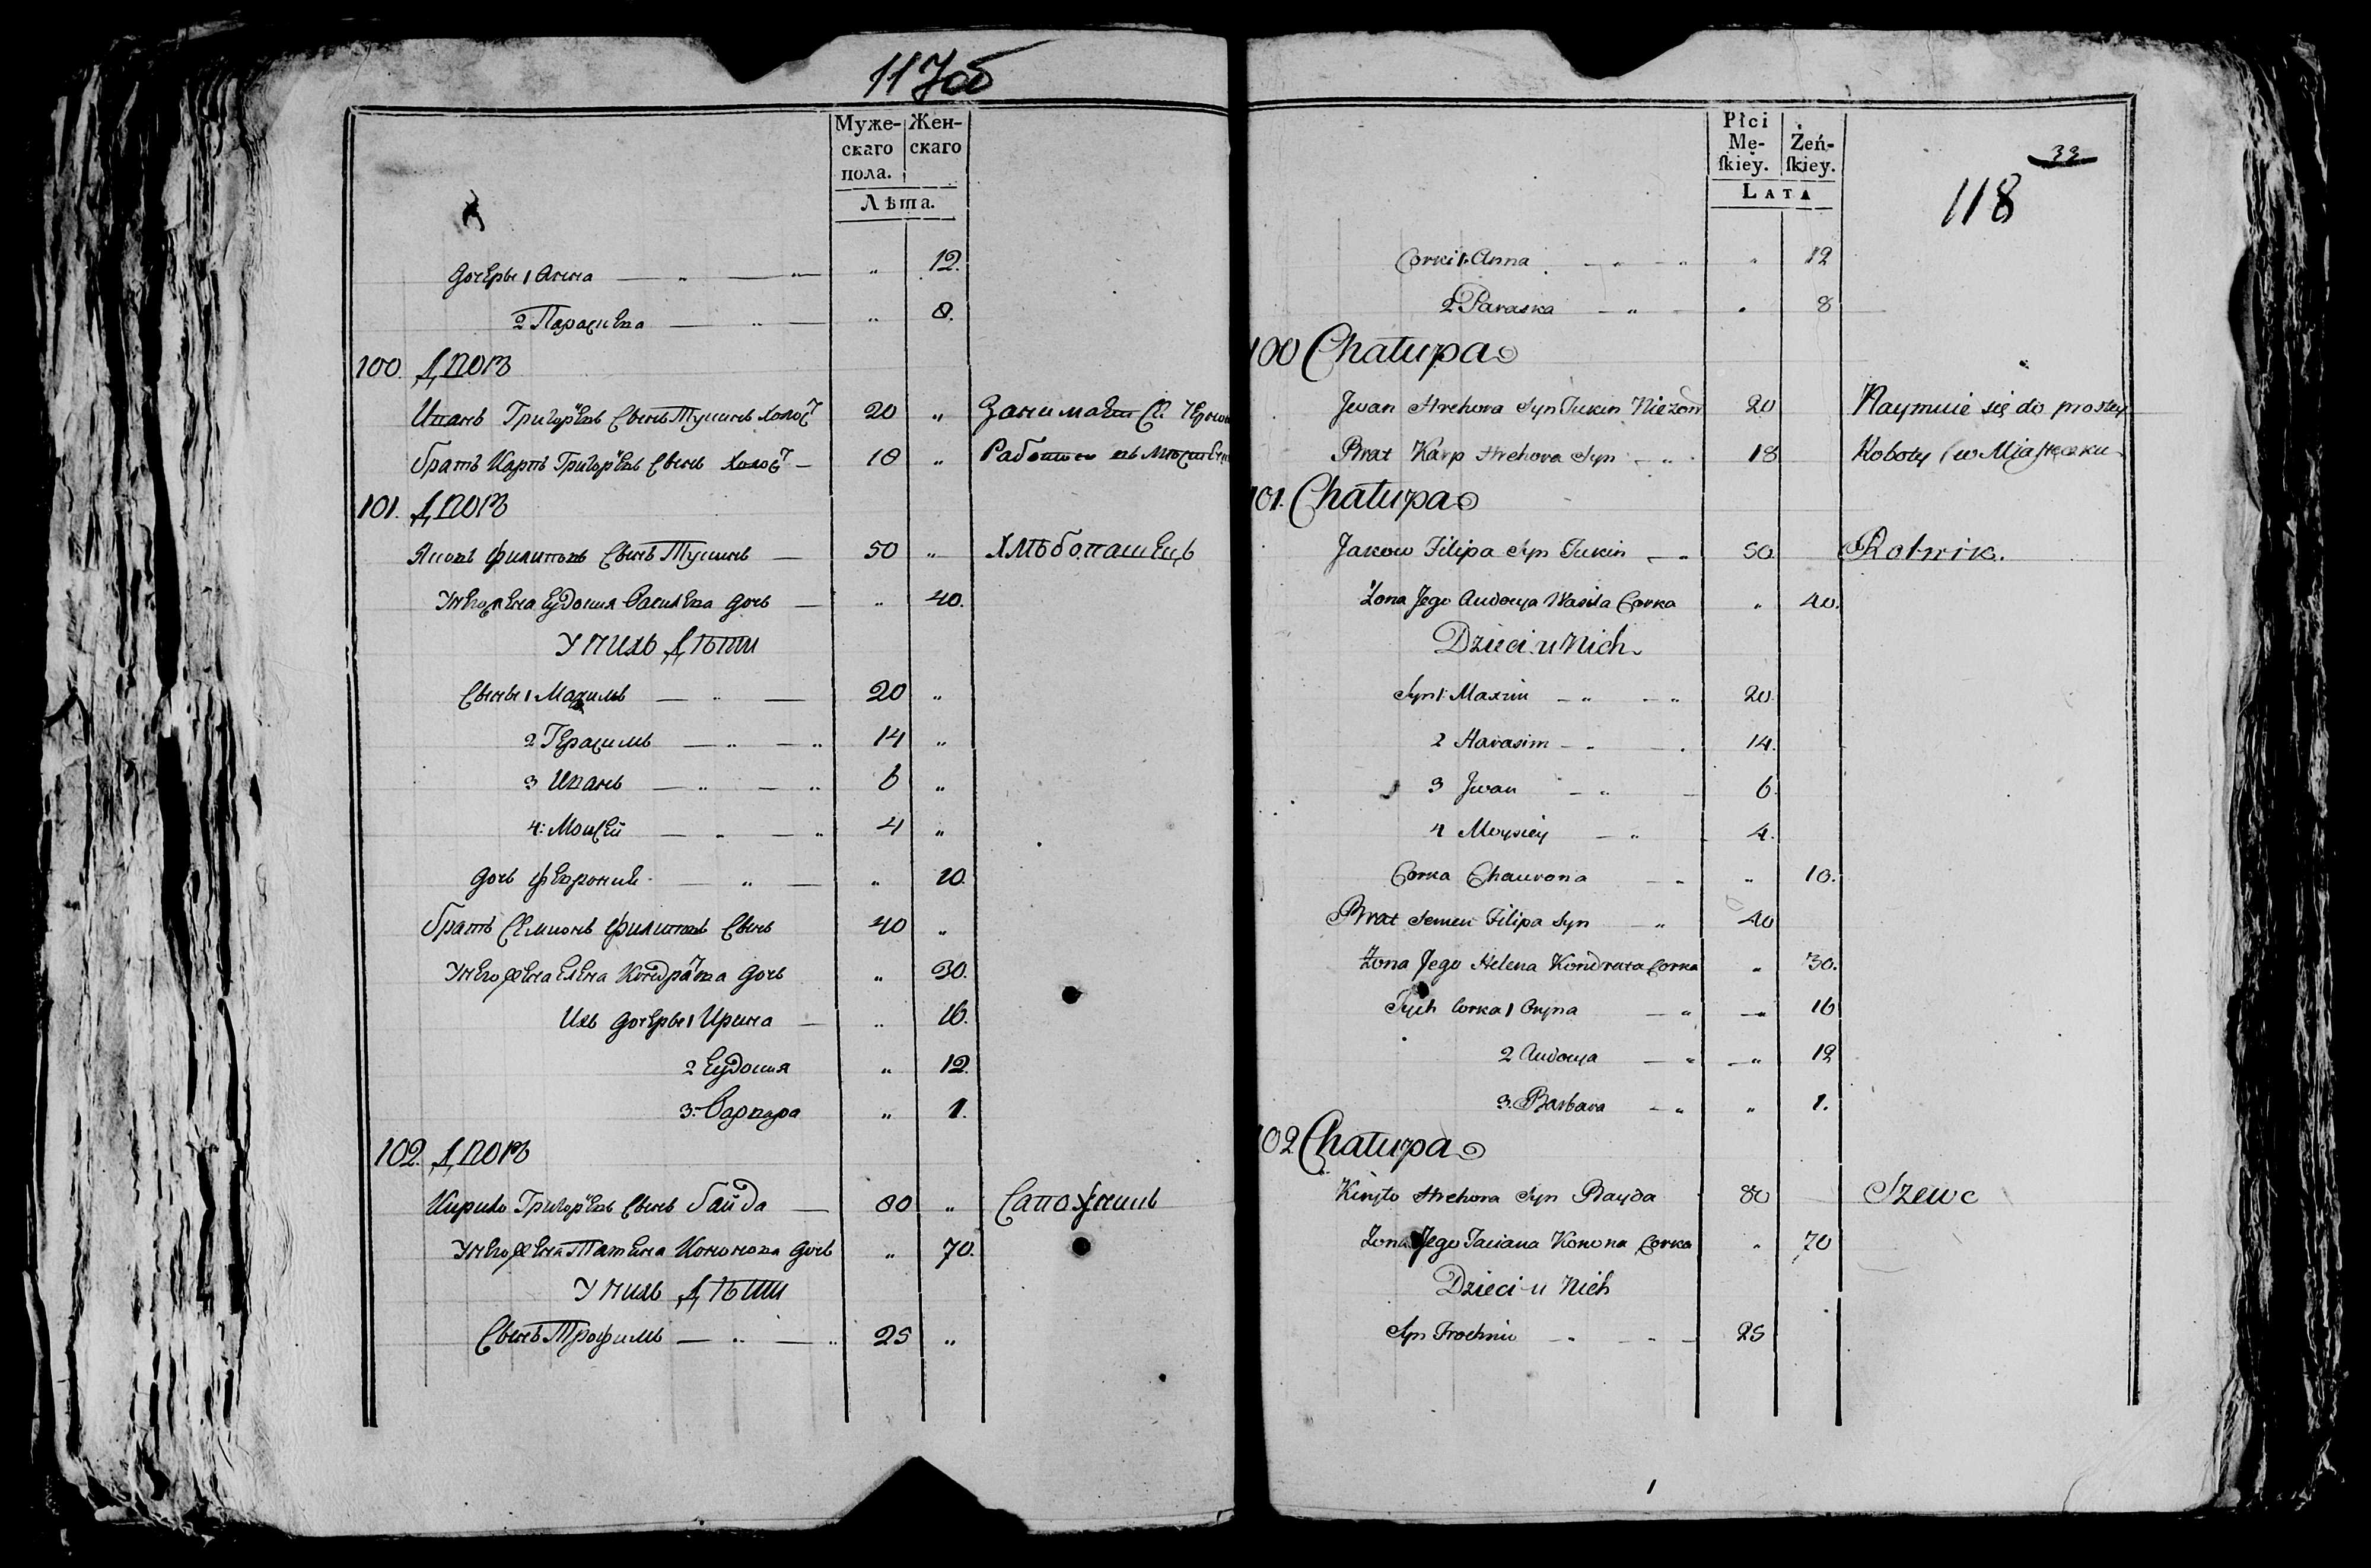 117об
Муже- Жен-
скаго скаго
пола.
Лѣта.
дочеры 1 Анна — " — " " 12.
2 Парасиева — " — " 8.
100. Двор
Иванъ Григорьевъ Сынъ Тукинъ холост 20 "
братъ Карпъ Григорьевъ Сынъ холост — 18 " Работою въ
101. Двор
Яковъ Филиповъ Сынъ Тукинъ — 50 " Хлѣбопашецъ
У него жена Евдокия Василева дочь — " 40.
У нихъ дѣти
Сыны 1 Максимъ — " — 20 "
2 Герасимъ — " — " 14 "
3 Иванъ — " — " 6 "
4: Моисей — " — " 4 "
дочь Феврониа — " — " 10.
братъ Семионъ Филиповъ Сынъ 40 "
У него жена Елена Кондратова дочь " 30.
Ихъ дочеры 1 Ирина — " 16.
2 Евдокия " 12.
3. Варвара " 1.
102. Двор
Кирило Григорьевъ Сынъ Байда — 80 " Сапожникъ
У него жена Татиена Кононова дочь " 70.
У нихъ дѣти
Сынъ Трофимъ — " — " 25 "
Płci
Mę- Żeń-
ſkiey. ſkiey.
LATA
33
118
Corki 1. Anna — " — " " 12
2 Paraska — " — " 8
100 Chałupa
Jwan Hrehora Syn Tukin Nieżon 20 Naymuie się do prostey
Brat Karp Hrehora Syn — " 18 Roboty w Miasteczku
101. Chałupa
Jakow Filipa Syn Tukin — " 50 Rolnik.
Żona Jego Audocya Wasila Corka " 40.
Dzieci u Nich
Syn 1: Maxim — " — " 20
2 Harasim — " — . 14.
3 Jwan — " — 6.
4 Moysiey — " 4.
Corka Chawrona — " " 10.
Brat Semen Filipa Syn — " 40
Żona Jego Helena Kondrata Corka " 30.
Tych Corka 1 Oryna — " — " 16
2 Audocya — " — " 12
3. Barbara — " " 1.
102 Chałupa
Kiryło Hrehora Syn Bayda 80 Szewc
Żona Jego Taciana Konona Corka " 70
Dzieci u Nich
Syn Trochim — " — " — 25